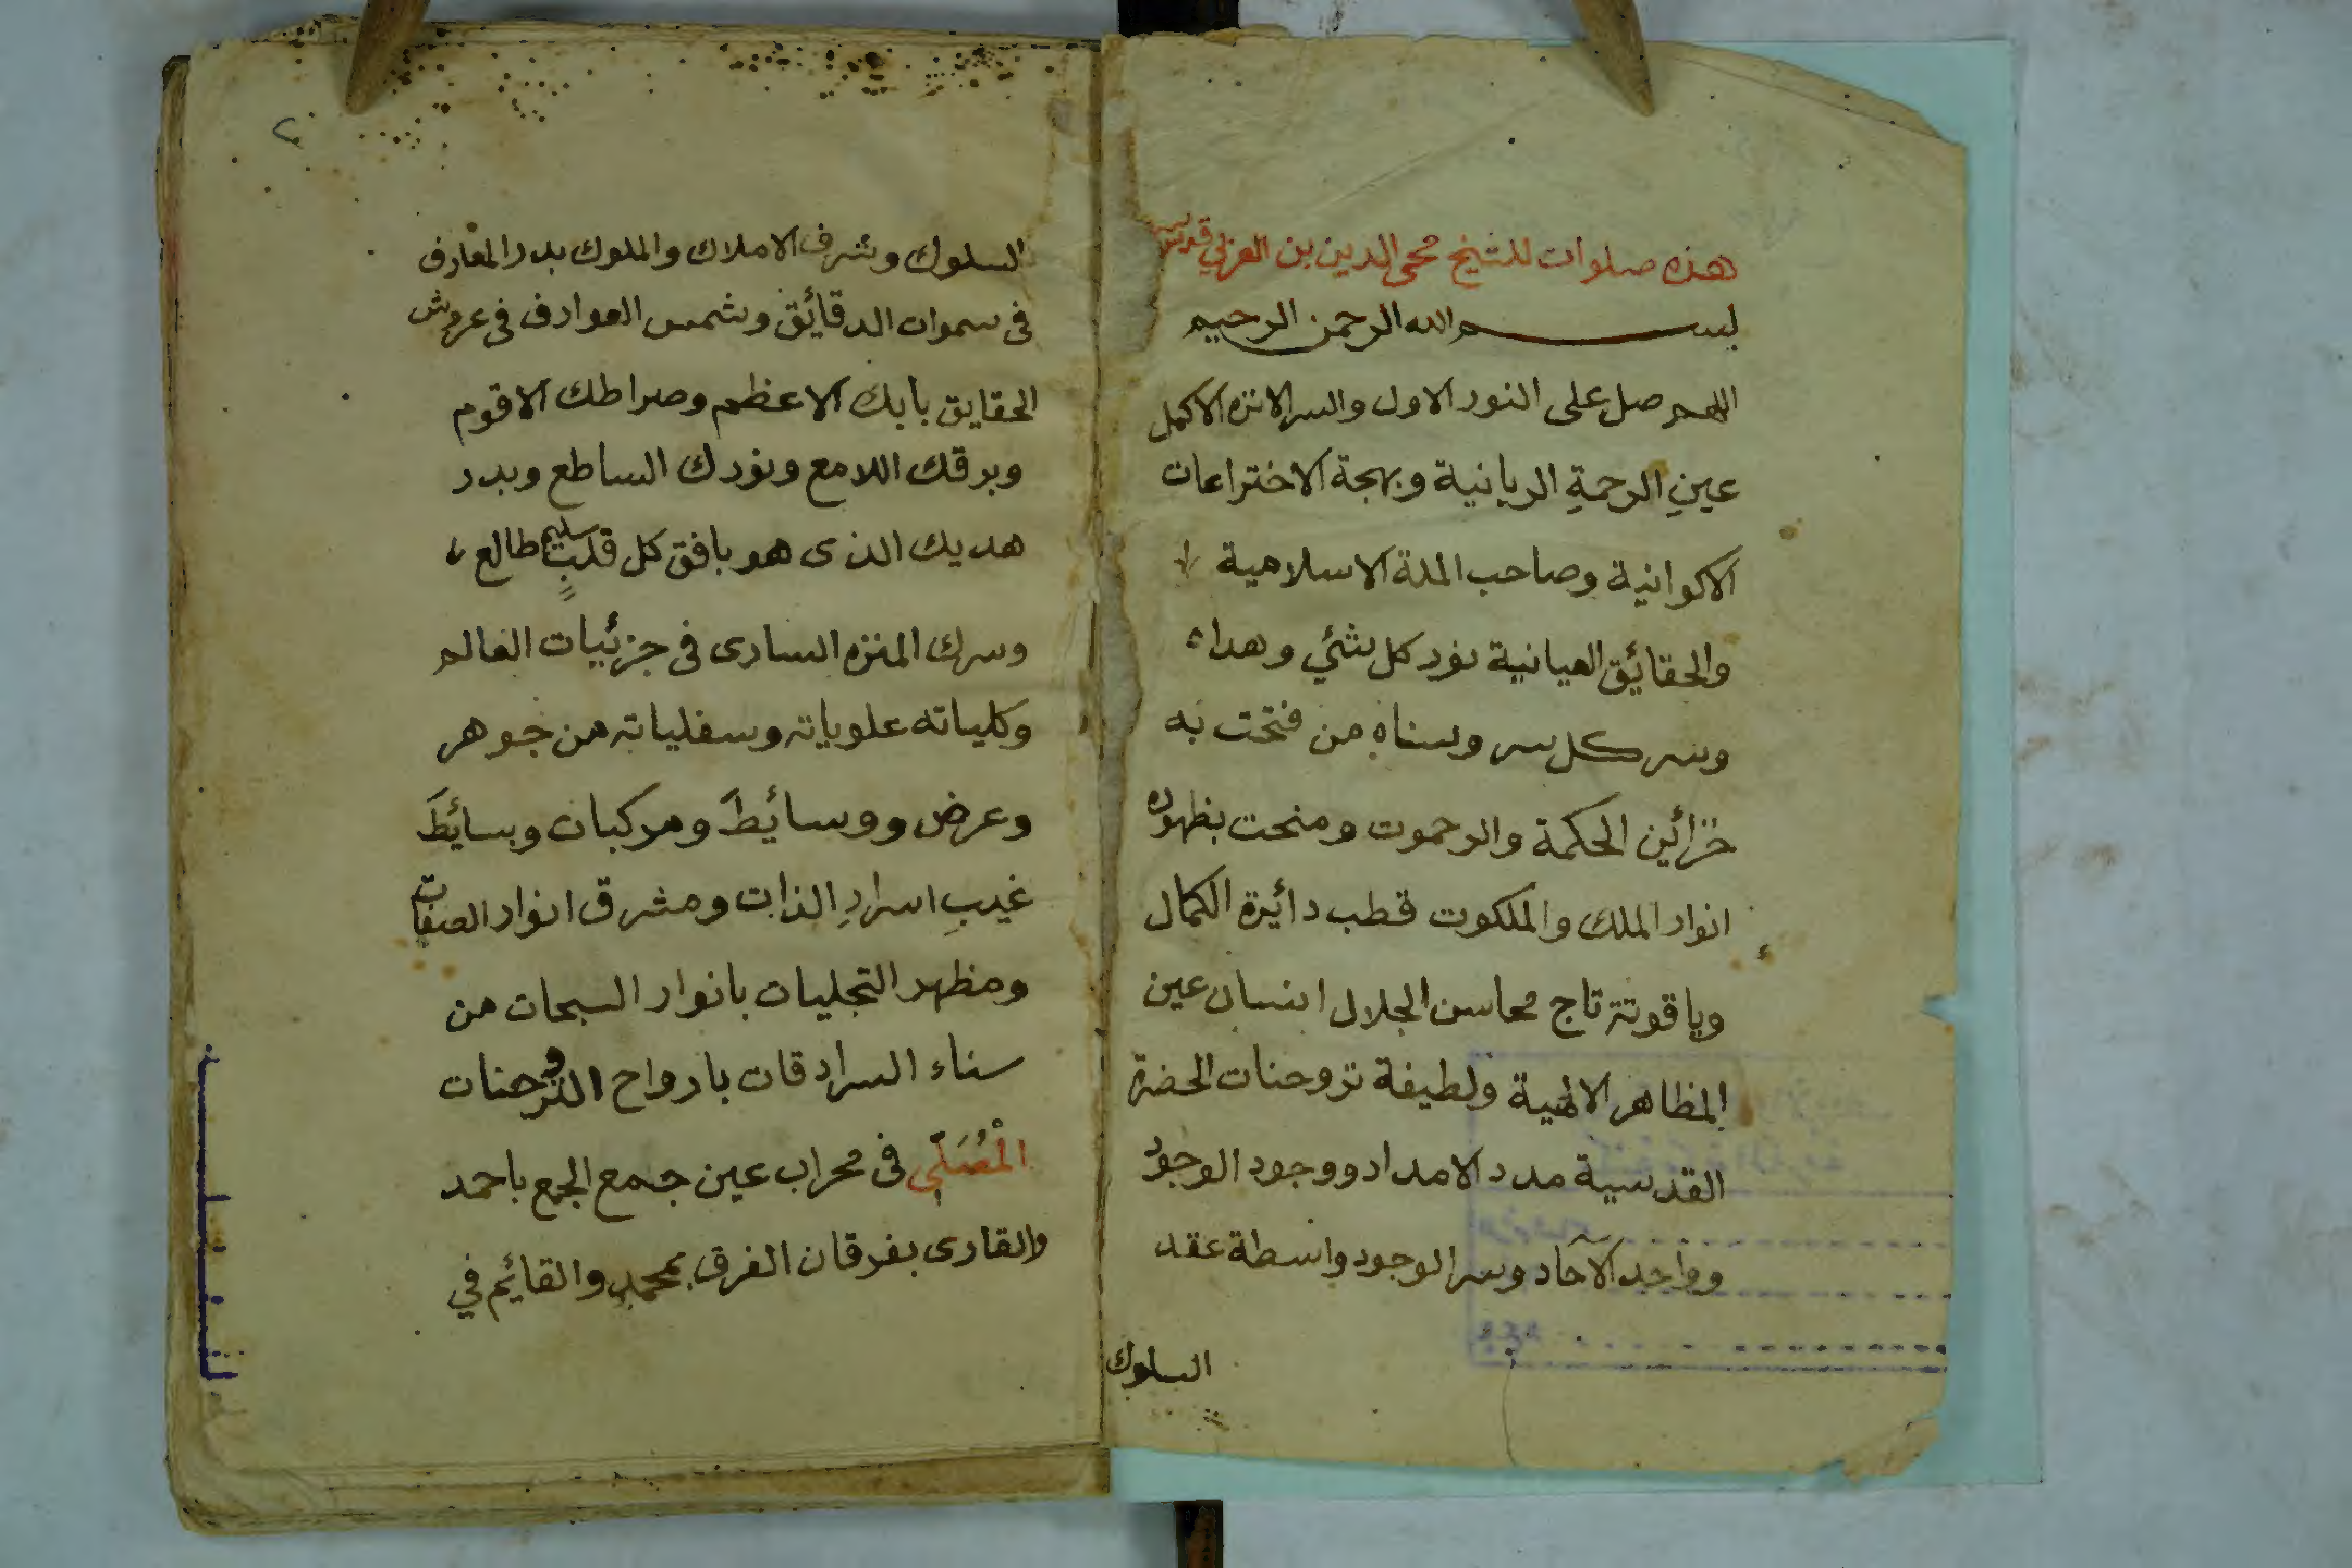 هذه صلوات للشيخ محى الدين بن العربي قدس
بسم الله الرحمن الرحيم
اللهم صل على النور الاول والسر الانزه الاكمل
عينِ الرحمةِ الربانية وبهجة الاختراعات
الاكوانية وصاحب الملة الاسلامية
والحقائيق العيانية نور كل شئي وهداه
وسر كل سر وسناه من فتحت به
خزائين الحكمة والرحموت ومنحت بظهوره
انوار الملك والملكوت قطب دائيرة الكمال
وياقوتة تاج محاسن الجلال انسان عين
المظاهر الالهية ولطيفة تروحنات الحضرة
القدسية مدد الامداد ووجود الوجود
وواحد الآحاد وسر الوجود واسطة عقد
السلوك
٢
السلوك وشرف الاملاك والملوك بدر المعارف
فى سموات الدقائيق وشمس العوارف فى عروش
الحقايق بابك الاعظم وصراطك الاقوم
وبرقك اللامع ونورك الساطع وبدر
هديك الذى هو بافق كل قلبٍ سليم طالع
وسرك المنزه السارى فى جزئيات العالم
وكلياته علوياته وسفلياته من جوهر
وعرض ووسائيطَ ومركبات وبسائيطَ
غيبِ اسرارِ الذات ومشرق انوار الصفات
ومظهر التجليات بانوار السبحات من
سناء السرادقات بارواح التروحنات
الْمُصَلّي فى محراب عين جمع الجمع باحمد
والقارى بفرقان الفرق بمحمدٍ والقائيم في